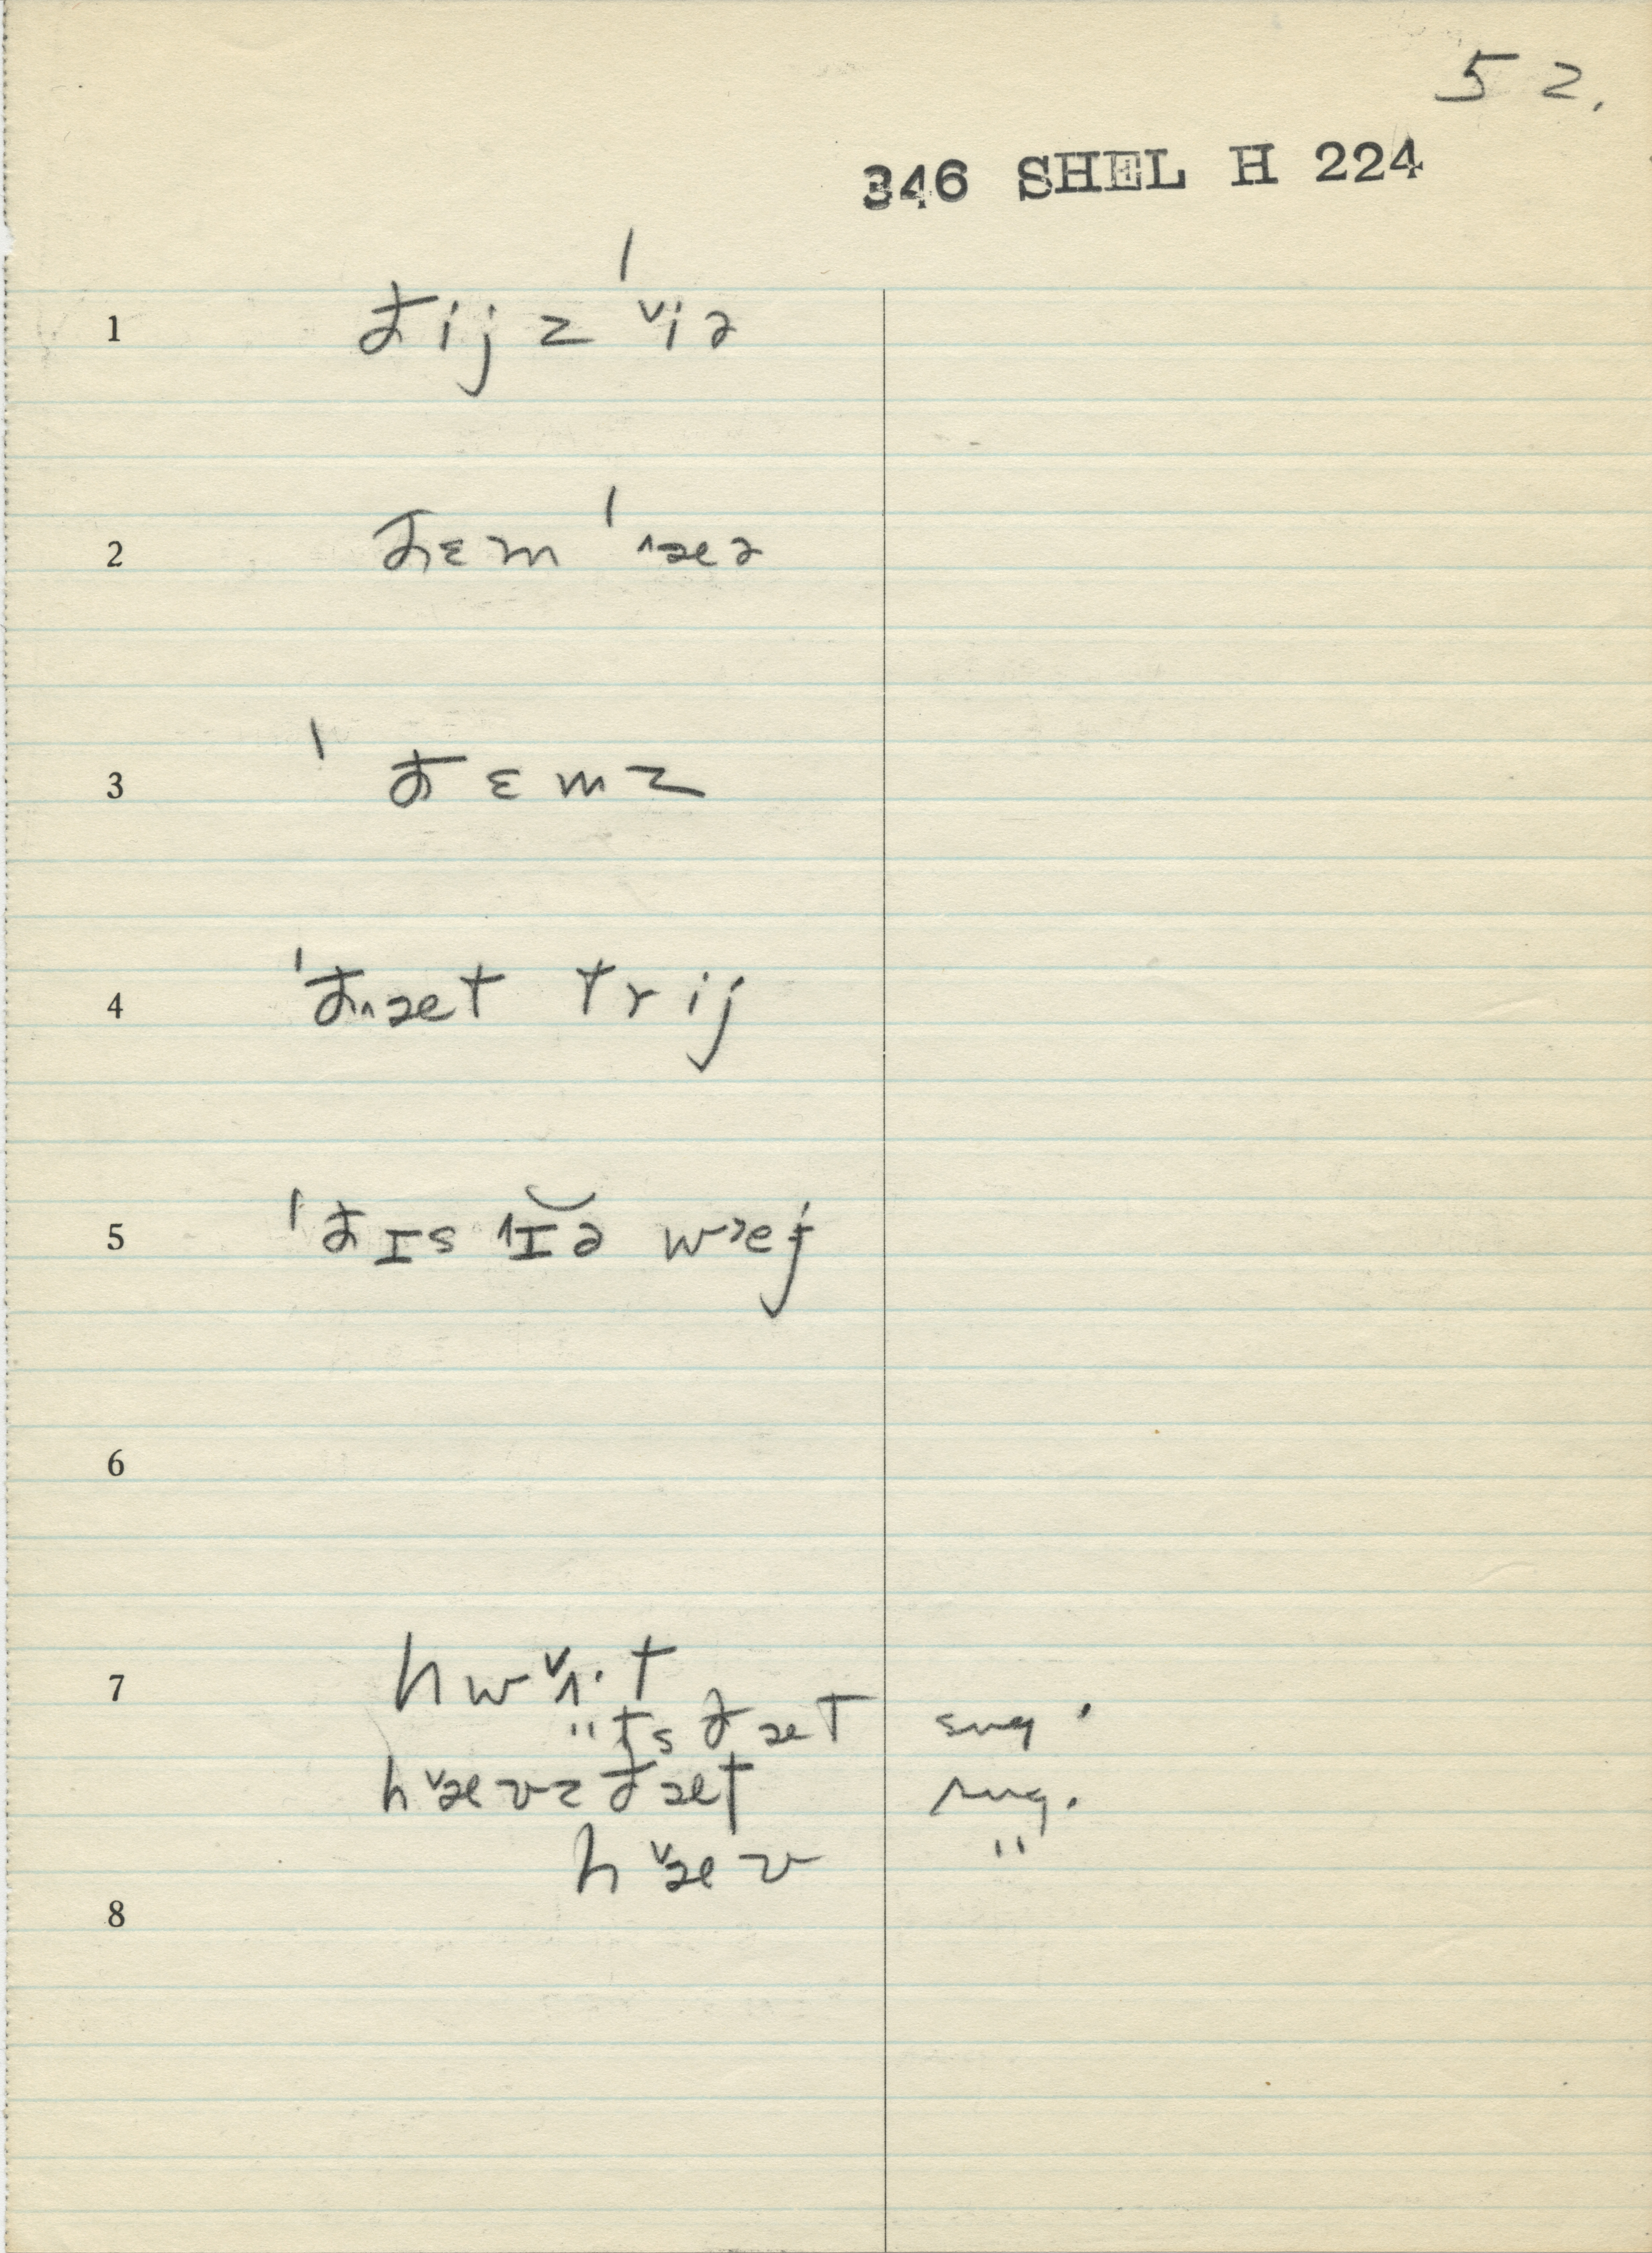 52.
346 SHEL H 224
1 ðij z ˈ˅iə
2 ðɛm ˈ˄æə
3 ˈðɛmz
4 ˈðæt trij
5 ˈðɪs ˄ɪ̆ə w˃ej
6
7 hw
"ts ðæt sug.
h˅ævz ðæt sug.
h˅æv "
8